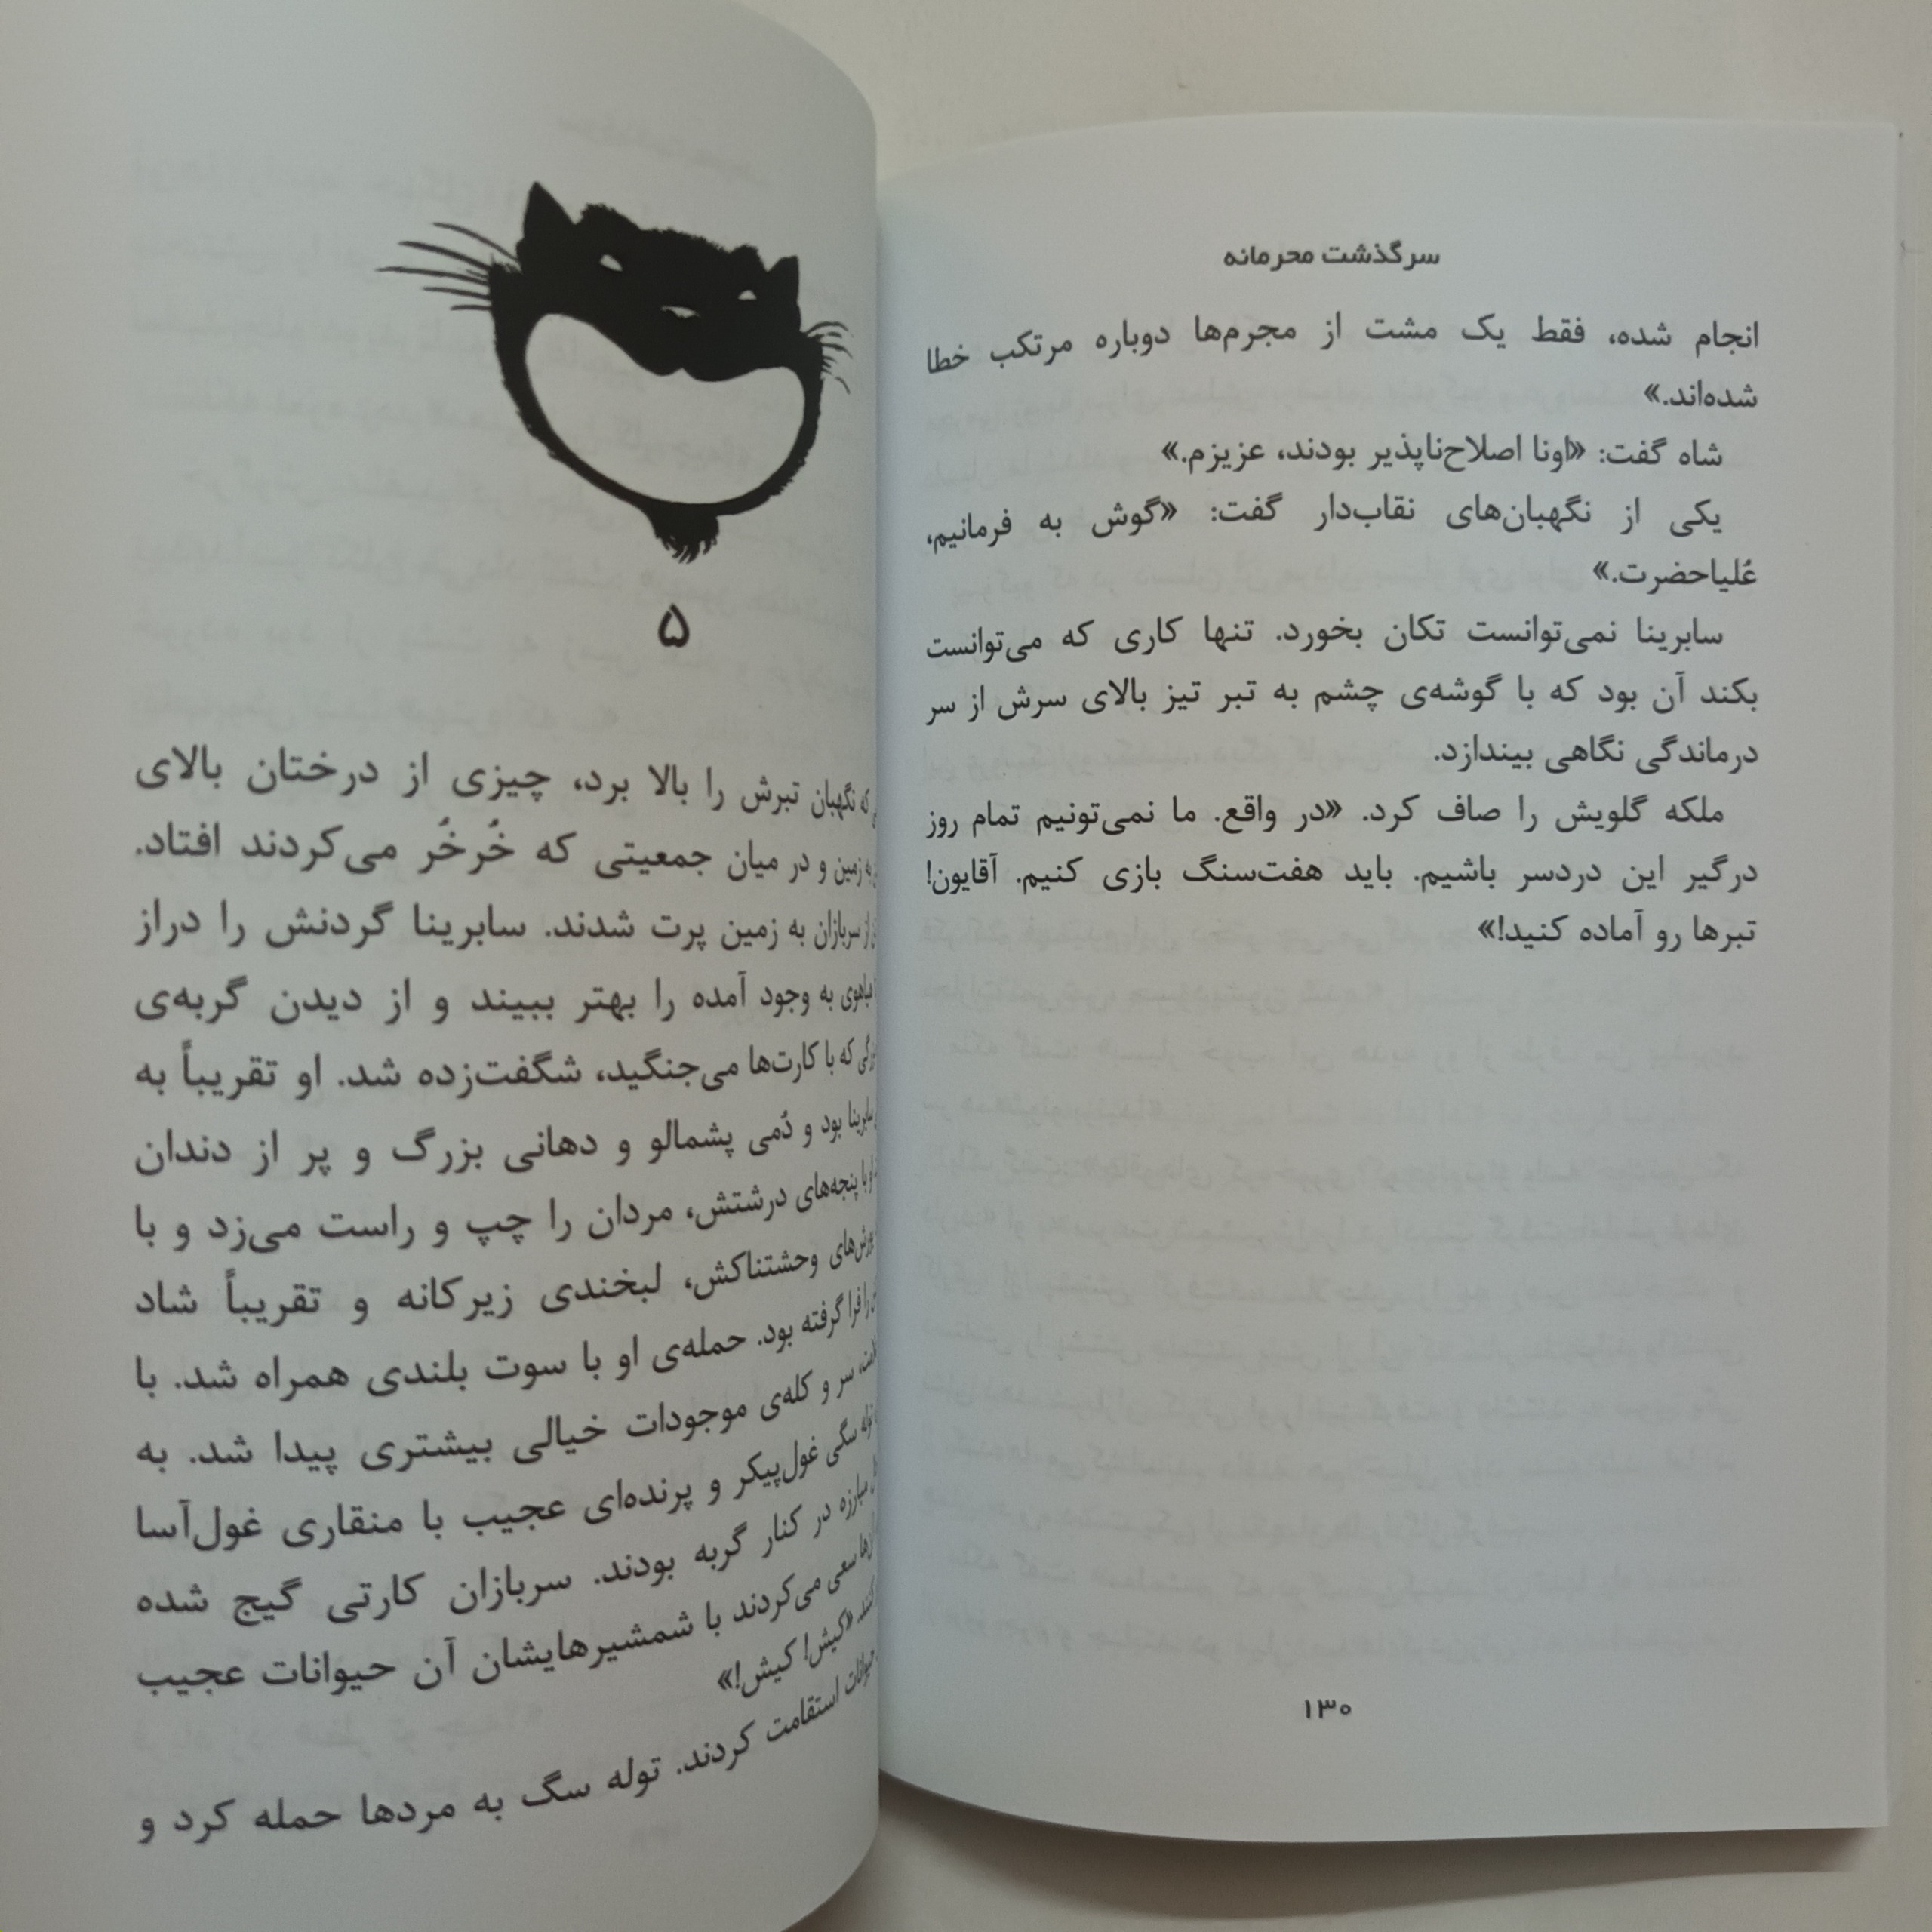 سرگذشت محرمانه
انجام شده، فقط یک مشت از مجرم‌ها دوباره مرتکب خطا
شده‌اند.»
شاه گفت: «اونا اصلاح‌ناپذیر بودند، عزیزم.»
یکی از نگهبان‌های نقاب‌دار گفت: «گوش به فرمانیم،
عُلیاحضرت.»
سابرینا نمی‌توانست تکان بخورد. تنها کاری که می‌توانست
بکند آن بود که با گوشه‌ی چشم به تبر تیز بالای سرش از سر
درماندگی نگاهی بیندازد.
ملکه گلویش را صاف کرد. «در واقع. ما نمی‌تونیم تمام روز
درگیر این دردسر باشیم. باید هفت‌سنگ بازی کنیم. آقایون!
تبرها رو آماده کنید!»
۱۳۰
۵
که نگهبان تبرش را بالا برد، چیزی از درختان بالای
به زمین و در میان جمعیتی که خُرخُر می‌کردند افتاد.
از سربازان به زمین پرت شدند. سابرینا گردنش را دراز
هیاهوی به وجود آمده را بهتر ببیند و از دیدن گربه‌ی
که با کارت‌ها می‌جنگید، شگفت‌زده شد. او تقریباً به
سابرینا بود و دُمی پشمالو و دهانی بزرگ و پر از دندان
با پنجه‌های درشتش، مردان را چپ و راست می‌زد و با
وحشتناکش، لبخندی زیرکانه و تقریباً شاد
را فرا گرفته بود. حمله‌ی او با سوت بلندی همراه شد. با
سر و کله‌ی موجودات خیالی بیشتری پیدا شد. به
توله سگی غول‌پیکر و پرنده‌ای عجیب با منقاری غول‌آسا
مبارزه در کنار گربه بودند. سربازان کارتی گیج شده
سعی می‌کردند با شمشیرهایشان آن حیوانات عجیب
«کیش! کیش!»
حیوانات استقامت کردند. توله سگ به مردها حمله کرد و